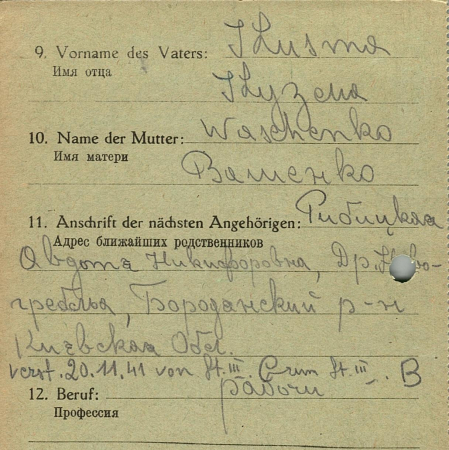 9. Vorname des Vaters: Kusma
Имя отца
Кузма
10. Name der Mutter: Waschenko
Имя матери
Ващенко
11. Anschrift der nächsten Angehörigen: Рибицкая
Адрес ближайших родственников
Авдотя Никифоровна, Др. Ново-
гребльа, Бороданский р-н
Киевская Обл.
verst. 20.11.41 von St. III. St. III. B
12. Beruf: рабочи
Профессия